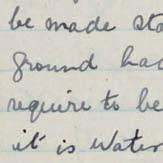 be made
ground had
require to be
it is water